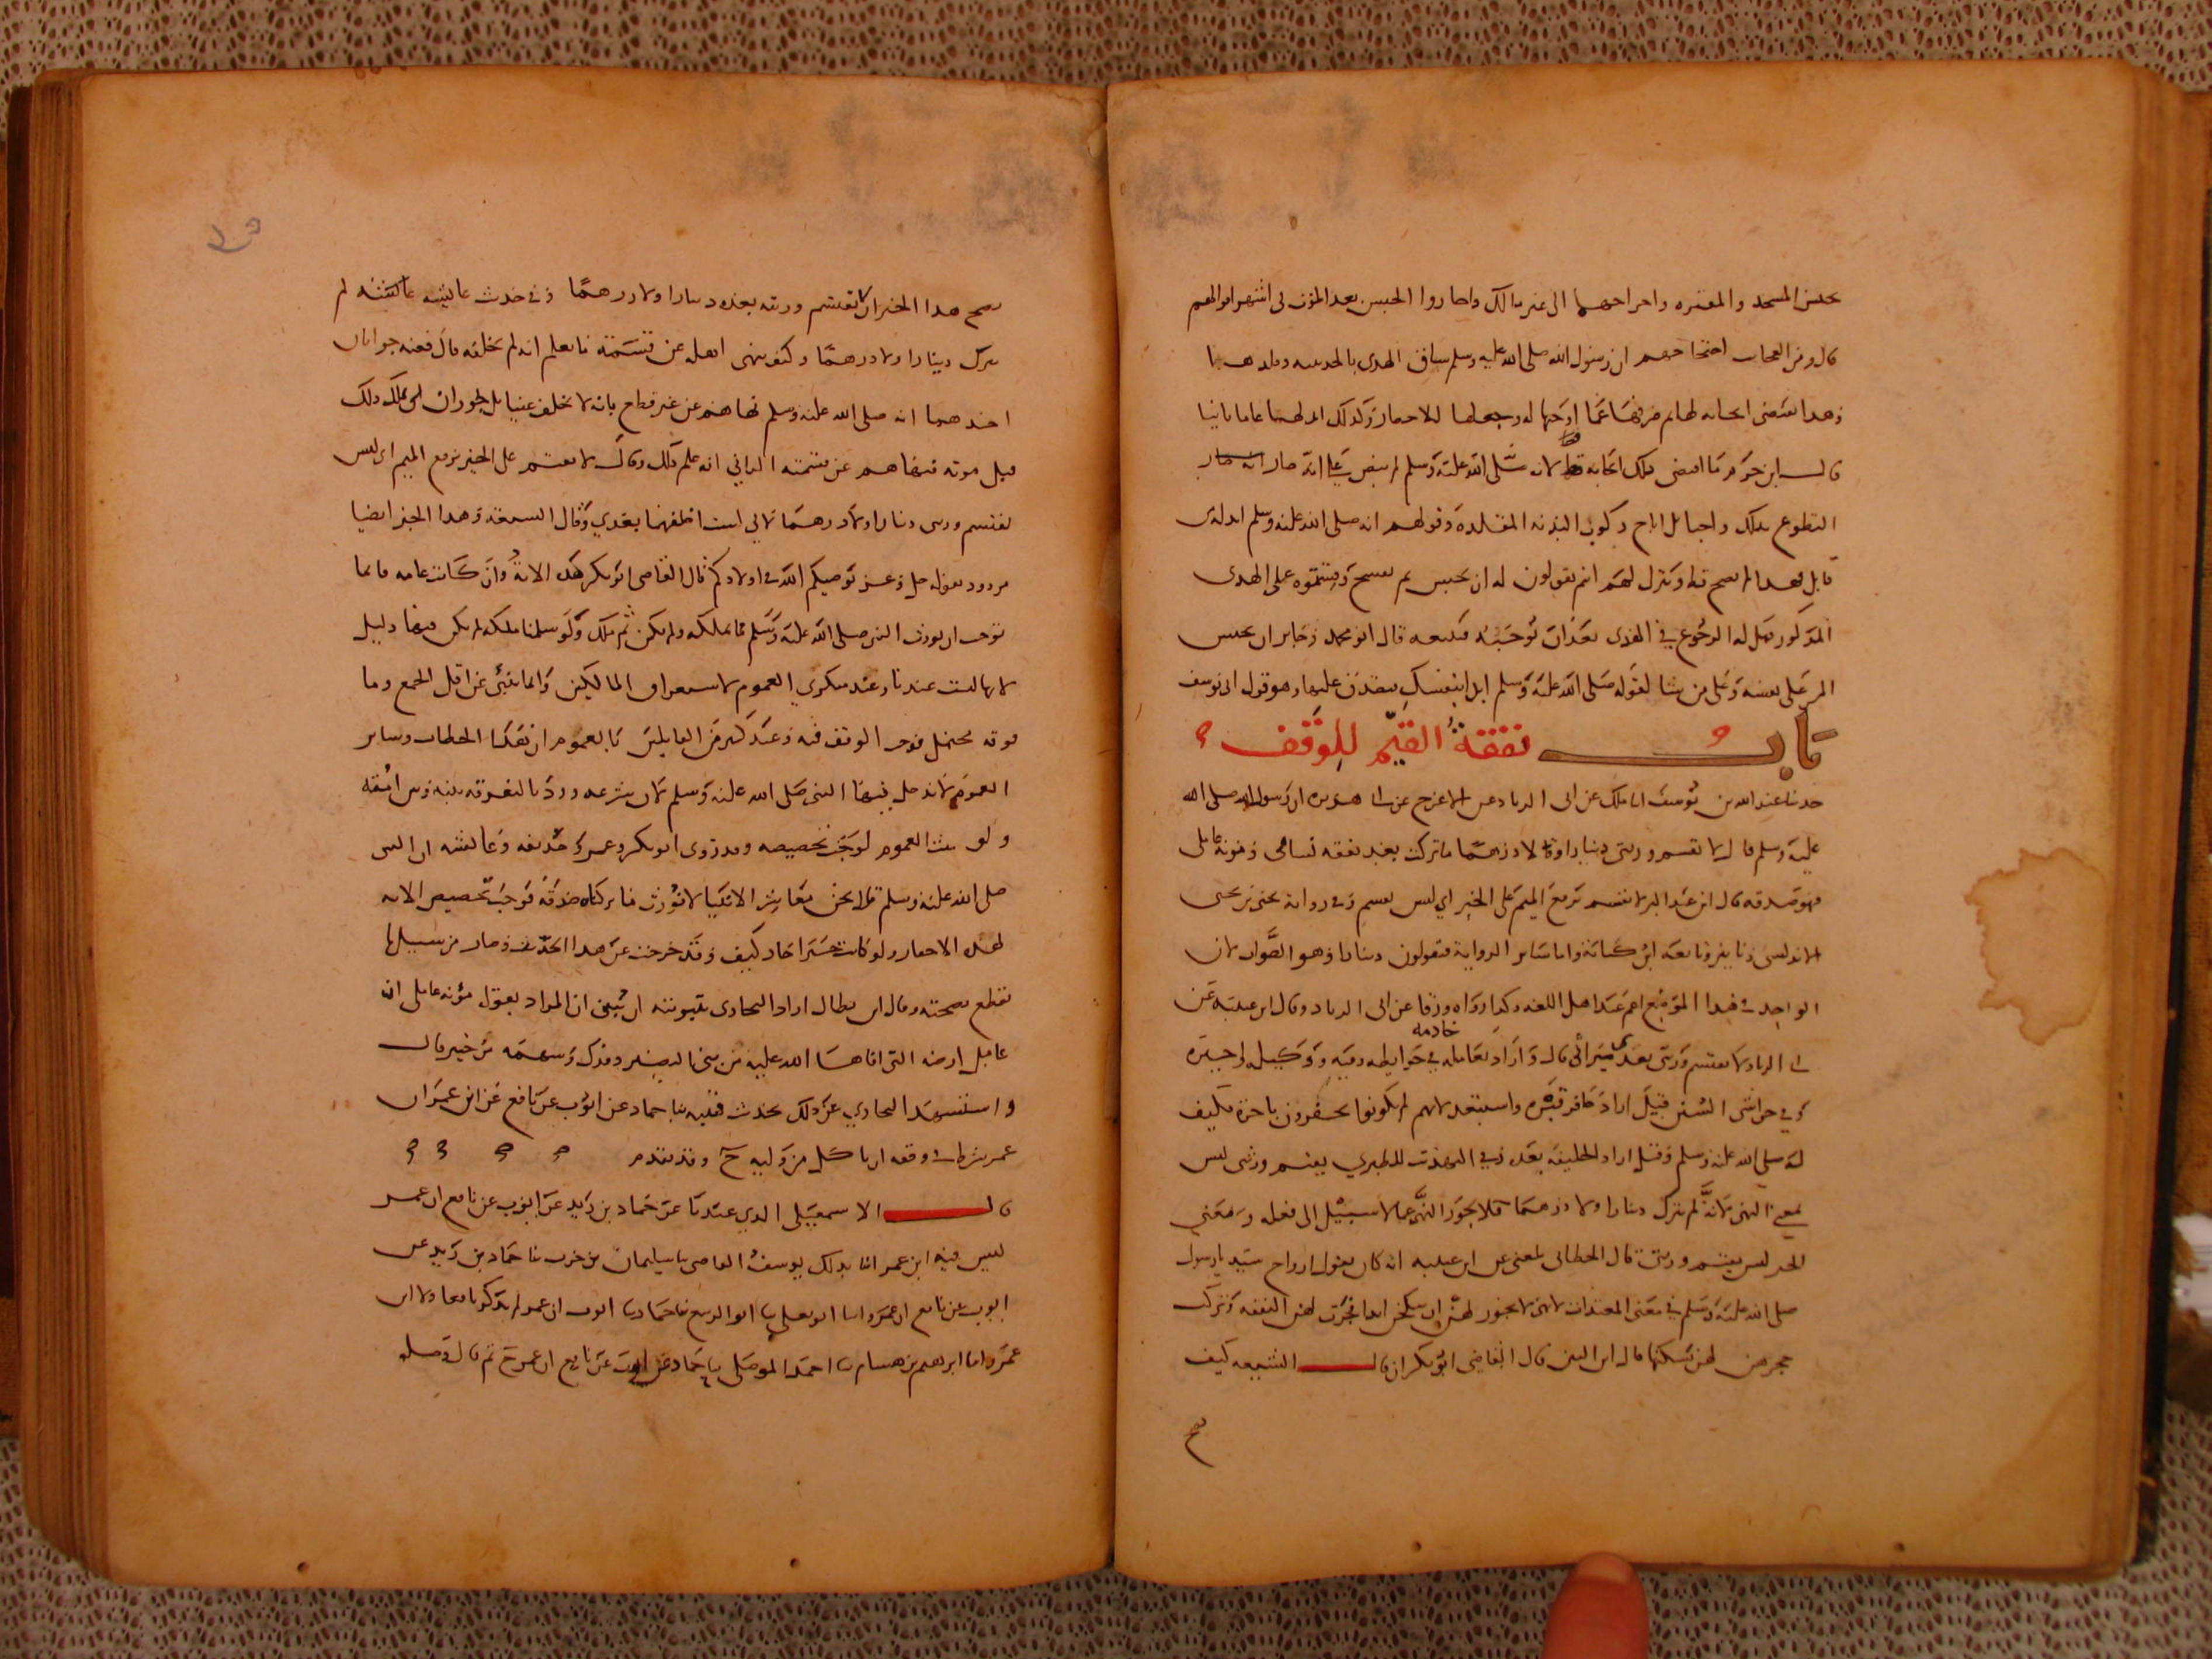 حبس المسجد والمقبره واخراجهما الى غير مالك واجازوا الحبس بعد الموت في اشهر اقوالهم
قال ومن العجاب احتجاجهم ان رسول الله صلى الله عليه وسلم ساق الهدى بالحديبيه وقلدها
وهذا يقتضى ايجابه لها ثم صرفها عما اوجبها له وجعلها للاحصار وكذلك ابدلها عاما ثانيا
قال ابن حزم ما اقتضى ذلك ايجابه قط لانه صلى الله عليه وسلم لم ينص على انه صار
التطوع بذلك واجبا بل اباح ركوب البدنه المقلدة وقولهم انه صلى الله عليه وسلم ابدله من
قابل فهذا لم يصح قط ونقول لهم انتم تقولون له ان يحبس ثم يفسح وقستموه على الهدى
المذكور فهل له الرجوع في الهدى بعد ان توجبه فيبيعه قال ابو محمد وجايز ان يحبس
المر على نفسه وعلى من شا لقوله صلى الله عليه وسلم ابدا بنفسك فتصدق عليها وهو قول ابى يوسف
باب نفقة القيم للوقف
حدثنا عبد الله بن يوسف انا ملك عن ابى الزناد عن الاعرج عن ابى هريره ان رسول الله صلى الله
عليه وسلم قال لا تقسم ورثتى دينارا ولا درهما ما تركت بعد نفقه نسائى ومونه عاملى
فهو صدقه قال ابن عبد البر لا تقسم برفع الميم على الخبر اي ليس تقسم وفى رواية يحيى بن يحيى
الاندلسى دنانير وتابعه ابن كنانة واما سائر الرواية فيقولون دينارا وهو الصواب لان
الواحد فى هذا الموضع اعم عند اهل اللغه وكذا رواه ورقا عن ابى الزناد وقال ابن عيينه عن
ابى الزناد لا يقتسم ورثتى بعدى ميراثى قال واراد بعامله خادمه في حوايطه وقيمه ووكيله واجيره
وفي حواشى السنن قيل اراد حافر قبره واستبعد لانهم لم يكونوا يحفرون باجرة فكيف
له صلى الله عليه وسلم وقيل اراد الخليفة بعده وفي التهذيب للطبري يقتسم ورثتى ليس
بمعنى النهى لانه لم يترك دينارا ولا درهما فلا يجوز النهى عما لا سبيل الى فعله ومعنى
الخبر ليس يقتسم ورثتى قال الخطابى بلغنى عن ابن عيينه انه كان يقول ازواج سيدنا رسول
صلى الله عليه وسلم في معنى المعتدات لانهن لا يجوز لهن ان ينكحن ابدا فجرت لهن النفقه وتركت
حجرهن لهن يسكنها قال ابن التين قال القاضى ابو بكر ان قال الشيعه كيف
يصح
يصح هذا الخبر ان لا تقتسم ورثته بعده دينارا ولا درهما وفى حديث عايشه لم
يترك دينارا ولا درهما وكيف ينهى اهله عن قسمة ما يعلم انه لم يخلفه قال فعنه جوابان
احدهما انه صلى الله عليه وسلم نهاهم عن غير قطع بانه لا يخلف عينا بل يجوز ان يملك ذلك
قبل موته فنهاهم عن قسمته الثانى انه علم ذلك وقال لا يقتسم على الخبر برفع الميم اى ليس
يقتسم ورثتى دينارا ولا درهما لانى لست اخلفهما بعدي وقال الشيعه وهذا الخبر ايضا
مردود بقوله جل وعز يوصيكم الله فى اولادكم قال القاضى ابو بكر هذه الاية وان كانت عامه فانما
توجب ان يورث النبى صلى الله عليه وسلم ما يملكه ولم يكن ثم ملك ولو سلمنا ملكه لم يكن فيها دليل
لانها ليست عندنا وعند منكري العموم لاستغراق المالكين وانما تنبئ عن اقل الجمع وما
فوقه محتمل فوجب الوقف فيه وعند كثير من القايلين بالعموم ان هذا الخطاب وساير
العموم لا يدخل فيها النبى صلى الله عليه وسلم لان شرعه ورد بالتفرقه بينه وبين امته
ولو ثبت العموم لوجب تخصيصه وقد روى ابو بكر وعمر وحذيفه وعائشه ان النبى
صلى الله عليه وسلم قال نحن معاشر الانبيا لا نورث ما تركناه صدقة فوجب تخصيص الايه
لهذه الاخبار ولو كانت خبر احاد كيف وقد خرجت عن هذا الحديث وصار من سبيل ما
نقطع بصحته وقال ابن بطال اراد البخارى بتبويبه ان يبين ان المراد بقوله مؤنه عاملى انه
عامل ارضه التى افاها الله عليه من بنى النضير وفدك وسهمه من خيبر قال
واستشهد البخاري على ذلك بحديث قتيبه نا حماد عن ايوب عن نافع عن ابن عمر ان
عمر شرط فى وقفه ان ياكل من وليه ح وقد تقدم
قال الاسمعيلى الذي عندنا عن حماد بن زيد عن ايوب عن نافع ان عمر
ليس فيه ابن عمر انا بذلك يوسف القاضى نا سليمان بن حرب نا حماد بن زيد عن
ايوب عن نافع ان عمر وانا ابو يعلى نا ابو الربيع نا حماد نا ايوب ان عمر لم يذكر نافعا ولا ابن
عمر وانا ابرهيم بن هشام نا احمد الموصلى نا حماد عن ايوب عن نافع ان عمر ح ثم قال وصله